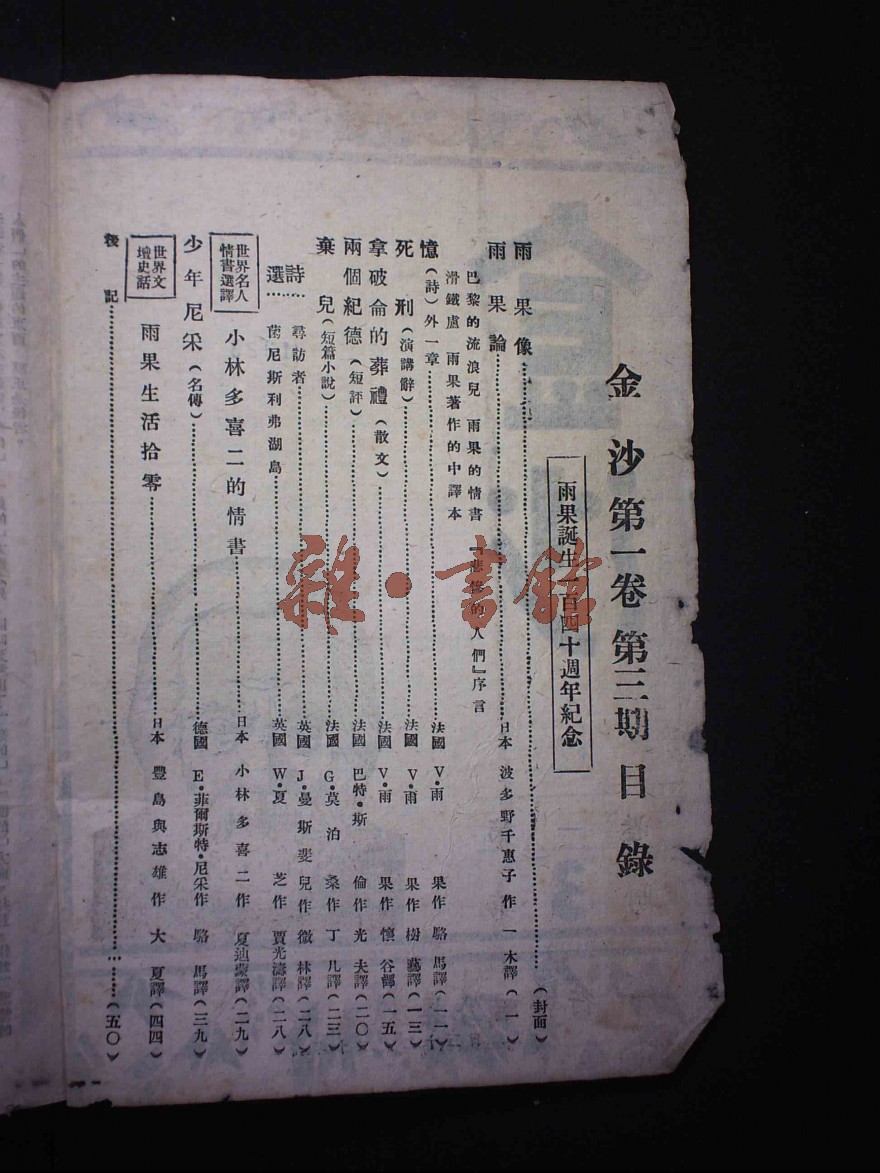 金沙第一卷第三期目錄
雨果誕生一百四十週年紀念
雨果像……(封面)
雨果論……日本 波多野千惠子作 一木譯(一)
巴黎的流浪兒 雨果的情書 『悲慘的人們』序言
滑鐵盧 雨果著作的中譯本
憶(詩)外一章……法國 V·雨果作 駱馬譯(一一)
死刑(演講辭)……法國 V·雨果作 樹藝譯(一三)
拿破侖的葬禮(散文)……法國 V·雨果作 懷谷譯(一五)
兩個紀德(短評)……法國 巴特·斯倫作 光夫譯(二〇)
棄兒(短篇小說)……法國 G·莫泊桑作 丁凡譯(二三)
詩選……
尋訪者……英國 J·曼斯斐兒作 微林譯(二八)
茵尼斯利弗湖島……英國 W·夏芝作 賈光濤譯(二八)
世界名人情書選譯
小林多喜二的情書……日本 小林多喜二作 夏迪蒙譯(二九)
少年尼采(名傳)……德國 E·菲爾斯特·尼采作 駱馬譯(三九)
世界文壇史話
雨果生活拾零……日本 豐島與志雄作 大夏譯(四四)
後記……(五〇)
雜·書館